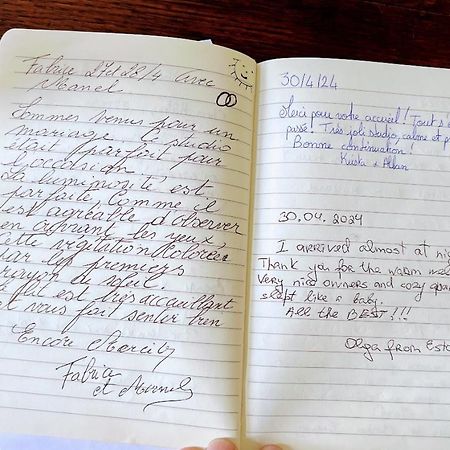 Fabrice 27 et 28/4 avec
Manel
Sommes venus pour un
mariage. Ce studio
était parfait pour
l'occasion.
La luminosité est
parfaite, comme il
est agréable d'observer
en ouvrant les yeux,
cette végétation colorée
par les premiers
rayon de soleil.
est très accueillant
vous fait sentir
Encore Merci
Fabrice
et Manel
30/4/24
Merci pour votre accueil! Tout s'
passé! Très joli studio, calme et p
Bonne continuation!
30.04.2024
I arrived almost at nig
Thank you for the warm wel
very nice owners and cozy apar
slept like a baby.
All the BEST!!!
Olga from Esto